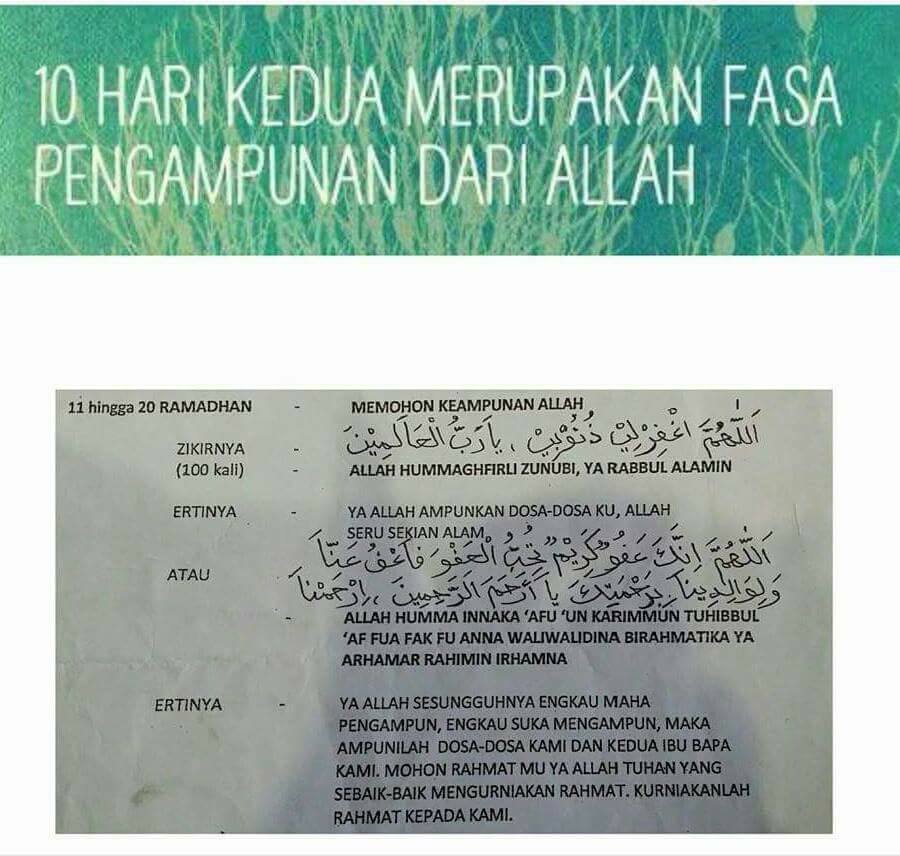 10 HARI KEDUA MERUPAKAN FASA
PENGAMPUNAN DARI ALLAH
11 hingga 20 RAMADHAN - MEMOHON KEAMPUNAN ALLAH
اَللّٰهُمَّ اغْفِرْلِيْ ذُنُوْبِيْ ، يَا رَبُّ الْعَالَمِيْنَ
ZIKIRNYA -
(100 kali) - ALLAH HUMMAGHFIRLI ZUNUBI, YA RABBUL ALAMIN
ERTINYA - YA ALLAH AMPUNKAN DOSA-DOSA KU, ALLAH
SERU SEKIAN ALAM
اَللّٰهُمَّ اِنَّكَ عَفُوٌّ كَرِيْمٌ تُحِبُّ الْعَفْوَ فَاعْفُ عَنَّا
ATAU - وَلِوَالِدِيْنَا بِرَحْمَتِكَ يَا أَرْحَمَ الرَّحِمِيْنَ ، اِرْحَمْنَا
- ALLAH HUMMA INNAKA ‘AFU ‘UN KARIMMUN TUHIBBUL
‘AF FUA FAK FU ANNA WALIWALIDINA BIRAHMATIKA YA
ARHAMAR RAHIMIN IRHAMNA
ERTINYA - YA ALLAH SESUNGGUHNYA ENGKAU MAHA
PENGAMPUN, ENGKAU SUKA MENGAMPUN, MAKA
AMPUNILAH DOSA-DOSA KAMI DAN KEDUA IBU BAPA
KAMI. MOHON RAHMAT MU YA ALLAH TUHAN YANG
SEBAIK-BAIK MENGURNIAKAN RAHMAT. KURNIAKANLAH
RAHMAT KEPADA KAMI.